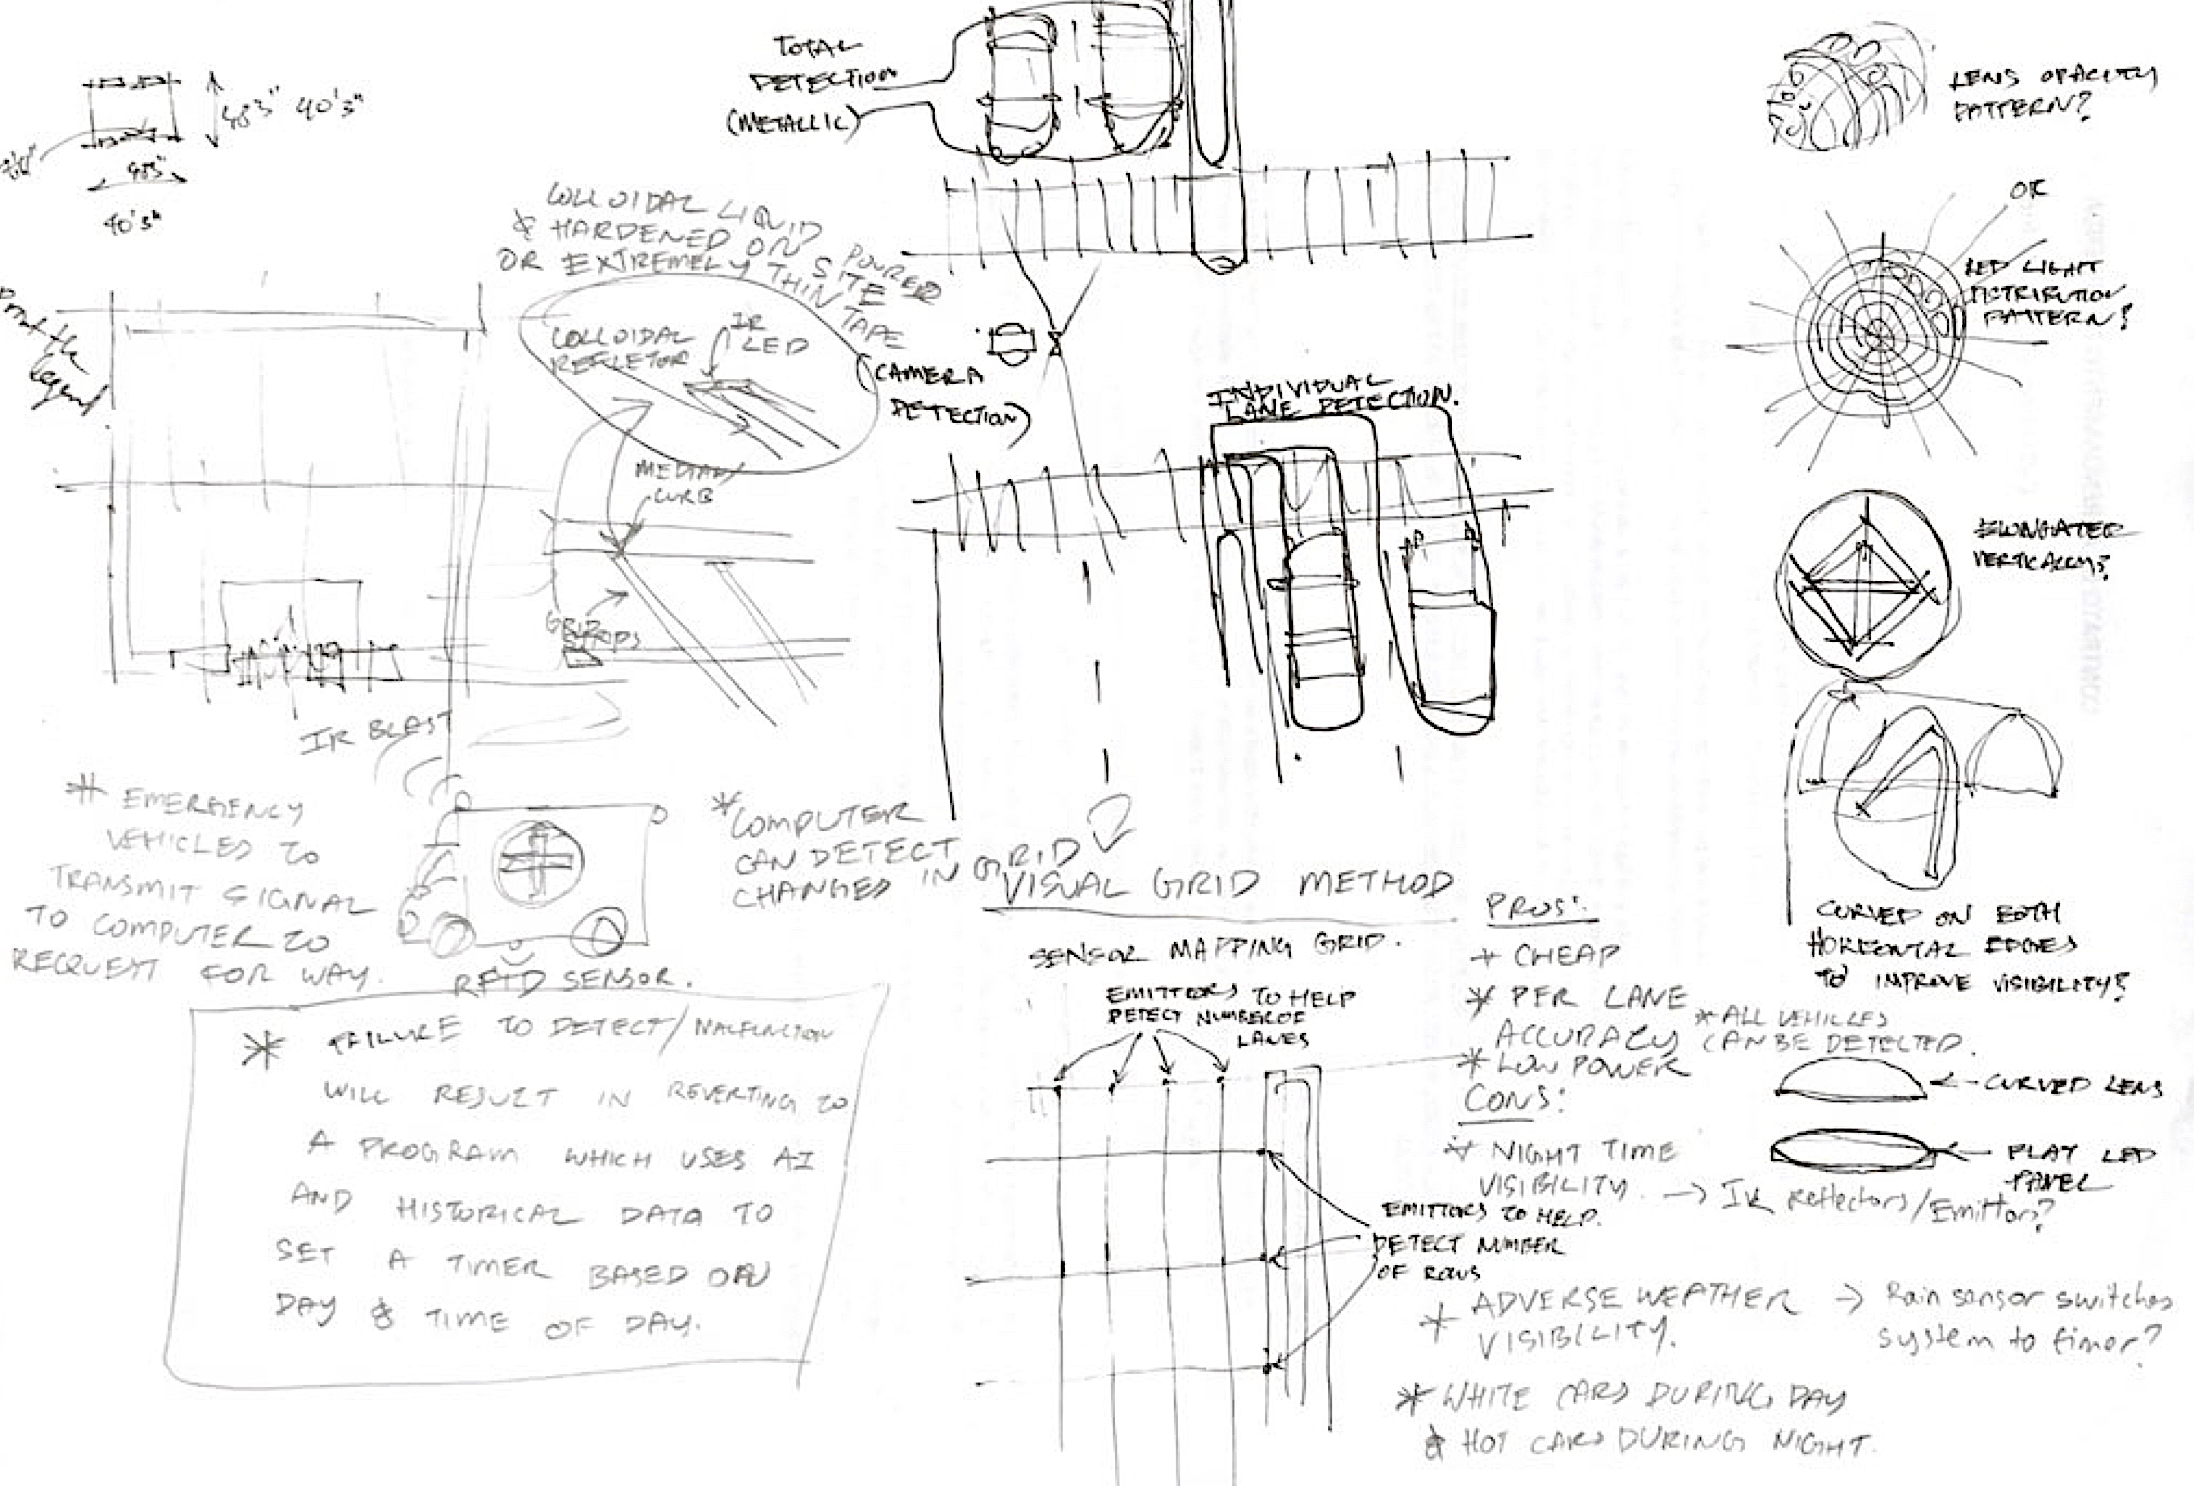 48'3" 40'3"
48'3"
40'3"
TOTAL
DETECTION
(METALLIC)
LENS OPACITY
PATTERN?
OR
LED LIGHT
DISTRIBUTION
PATTERN?
COLLOIDAL LIQUID POURED
& HARDENED ON SITE
OR EXTREMELY THIN TAPE
COLLOIDAL
REFLETOR
IR
LED
(CAMERA
DETECTION)
INDIVIDUAL
LANE DETECTION.
MEDIAN/
CURB
GRID
STRIPS
ELONGATED
VERTICALLY?
CURVED ON BOTH
HORIZONTAL EDGES
TO IMPROVE VISIBILITY?
IR BLAST
* EMERGENCY
VEHICLES TO
TRANSMIT SIGNAL
TO COMPUTER TO
REQUEST FOR WAY.
RFID SENSOR.
* COMPUTER
CAN DETECT
CHANGES IN GRID
VISUAL GRID METHOD
SENSOR MAPPING GRID.
EMITTORS TO HELP
DETECT NUMBER OF
LANES
EMITTORS TO HELP.
DETECT NUMBER
OF ROWS
PROS:
* CHEAP
* PER LANE
ACCURACY
* ALL VEHICLES
CAN BE DETECTED.
* LOW POWER
CONS:
* NIGHT TIME
VISIBILITY. → IR Reflectors/Emittors?
* ADVERSE WEATHER → Rain sensor switches
VISIBILITY. system to timer?
* WHITE CARS DURING DAY
& HOT CARS DURING NIGHT.
CURVED LENS
FLAT LED
PANEL
* FAILURE TO DETECT/MALFUNCTION
WILL RESULT IN REVERTING TO
A PROGRAM WHICH USES AI
AND HISTORICAL DATA TO
SET A TIMER BASED ON
DAY & TIME OF DAY.